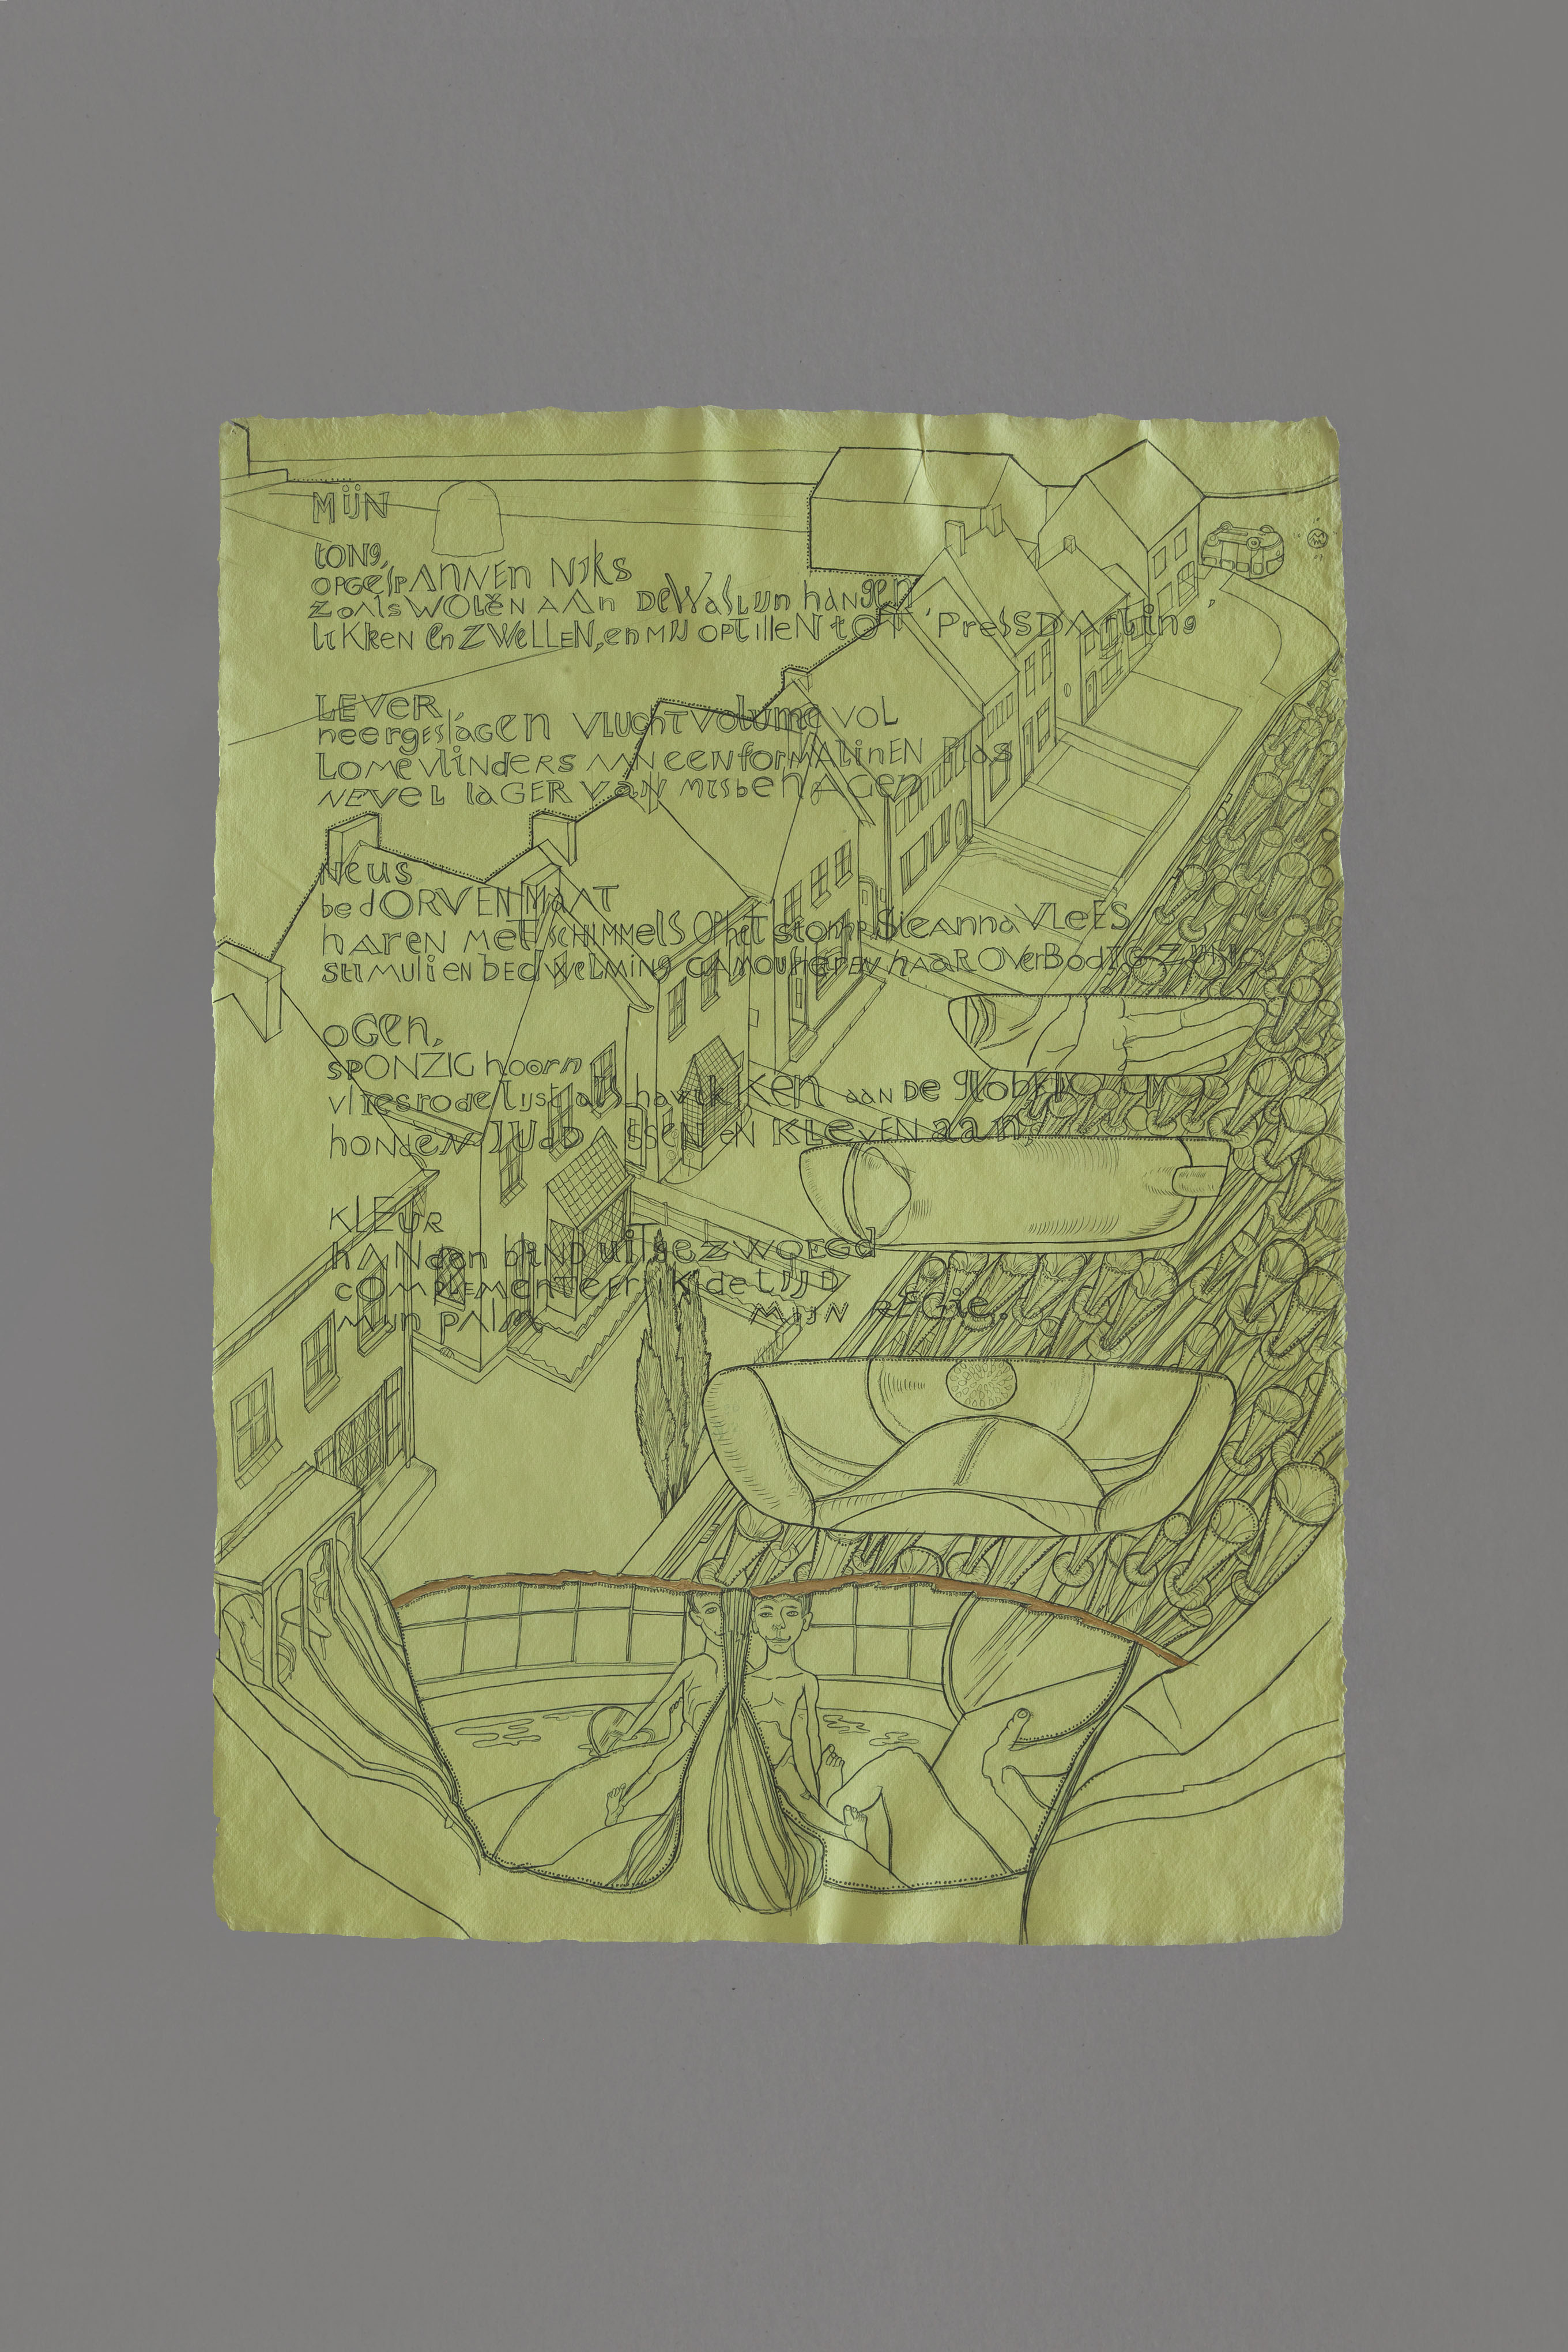 MijN
tONg,
OPGeSPANNEn Niks
ZoAlS WOLeN AAn DeWaSLijn hangen
liKKen en ZWeLLEN, en Mij OPtilleN tOT 'PreSSDArling'
LEVeR,
neergeslagen VLUchTVolume VOL
LomeVLiNderS AAN eenforMALinEN Plas
NEVeL laGER van MisbehAGen
Neus
bedORVEN MaAT
hAreN MeT SCHIMMelS OPhet stomp, SieannaVLeES
StiMuli en bedWeLMiNg CAMOUFleren hAAR OVerBodiG ZIJN
OGen,
SPONZiG hoorn
vliesrode lijst als havikKen AAN De glObEN
honden JUdaSSEN eN KLeVEN aan,
KLEuR
hANden bliND uiTgeZWOEGd
coMPLEMenteer ik de tIJD
Mijn PALM MIJN REGie.